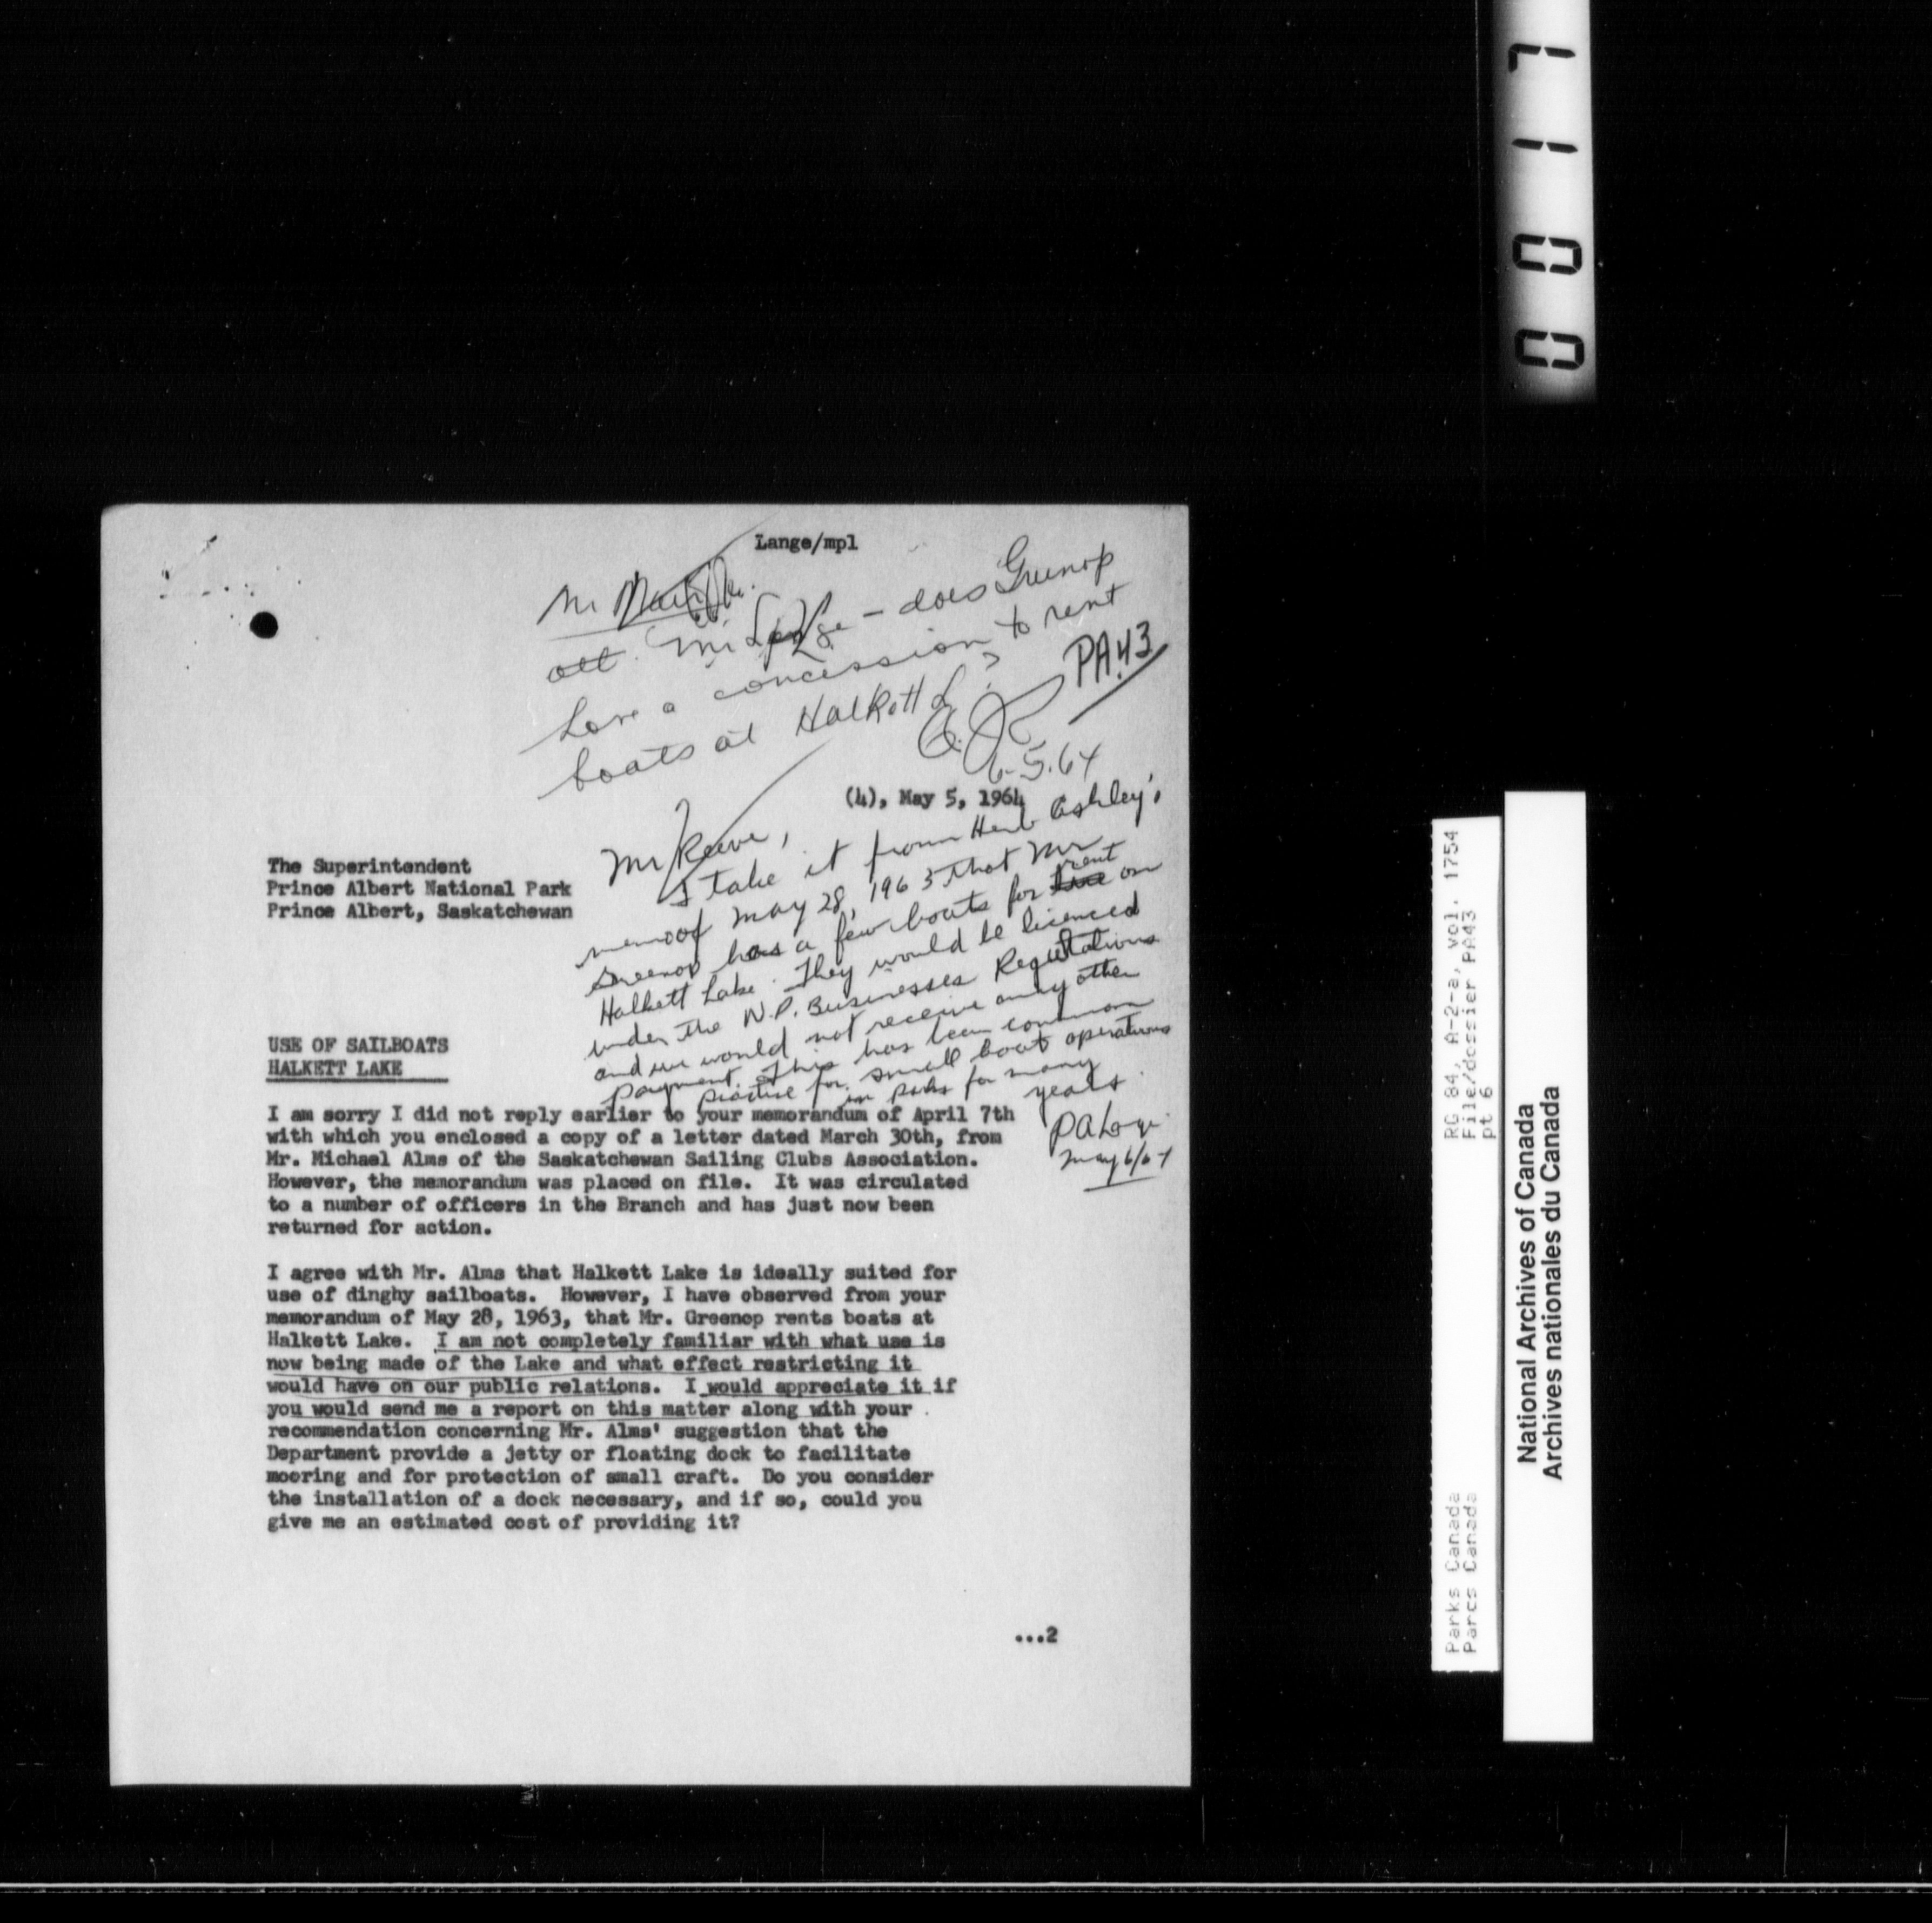 Lange/mpl
Mr
att. Mr Lange - does Greenop
have a concession to rent
boats at Halkett L?
PA43
6-5-64
(4), May 5, 1964
The Superintendent
Prince Albert National Park
Prince Albert, Saskatchewan
Mr Reeve,
I take it from Herb Ashley's
memo of May 28, 1963 that Mr
Greenop has a few boats for rent on
Halkett Lake. They would be licenced
under the N.P. Businesses Regulations
and we would not receive any other
payment. This has been common
practise for small boat operations
in parks for many
years.
May 6/64
USE OF SAILBOATS
HALKETT LAKE
I am sorry I did not reply earlier to your memorandum of April 7th
with which you enclosed a copy of a letter dated March 30th, from
Mr. Michael Alms of the Saskatchewan Sailing Clubs Association.
However, the memorandum was placed on file.  It was circulated
to a number of officers in the Branch and has just now been
returned for action.
I agree with Mr. Alms that Halkett Lake is ideally suited for
use of dinghy sailboats.  However, I have observed from your
memorandum of May 28, 1963, that Mr. Greenop rents boats at
Halkett Lake.  I am not completely familiar with what use is
now being made of the Lake and what effect restricting it
would have on our public relations.  I would appreciate it if
you would send me a report on this matter along with your
recommendation concerning Mr. Alms' suggestion that the
Department provide a jetty or floating dock to facilitate
mooring and for protection of small craft.  Do you consider
the installation of a dock necessary, and if so, could you
give me an estimated cost of providing it?
...2
0017
RG 84, A-2-a, vol. 1754
File/dossier PA43
pt 6
Parks Canada
Parcs Canada
National Archives of Canada
Archives nationales du Canada